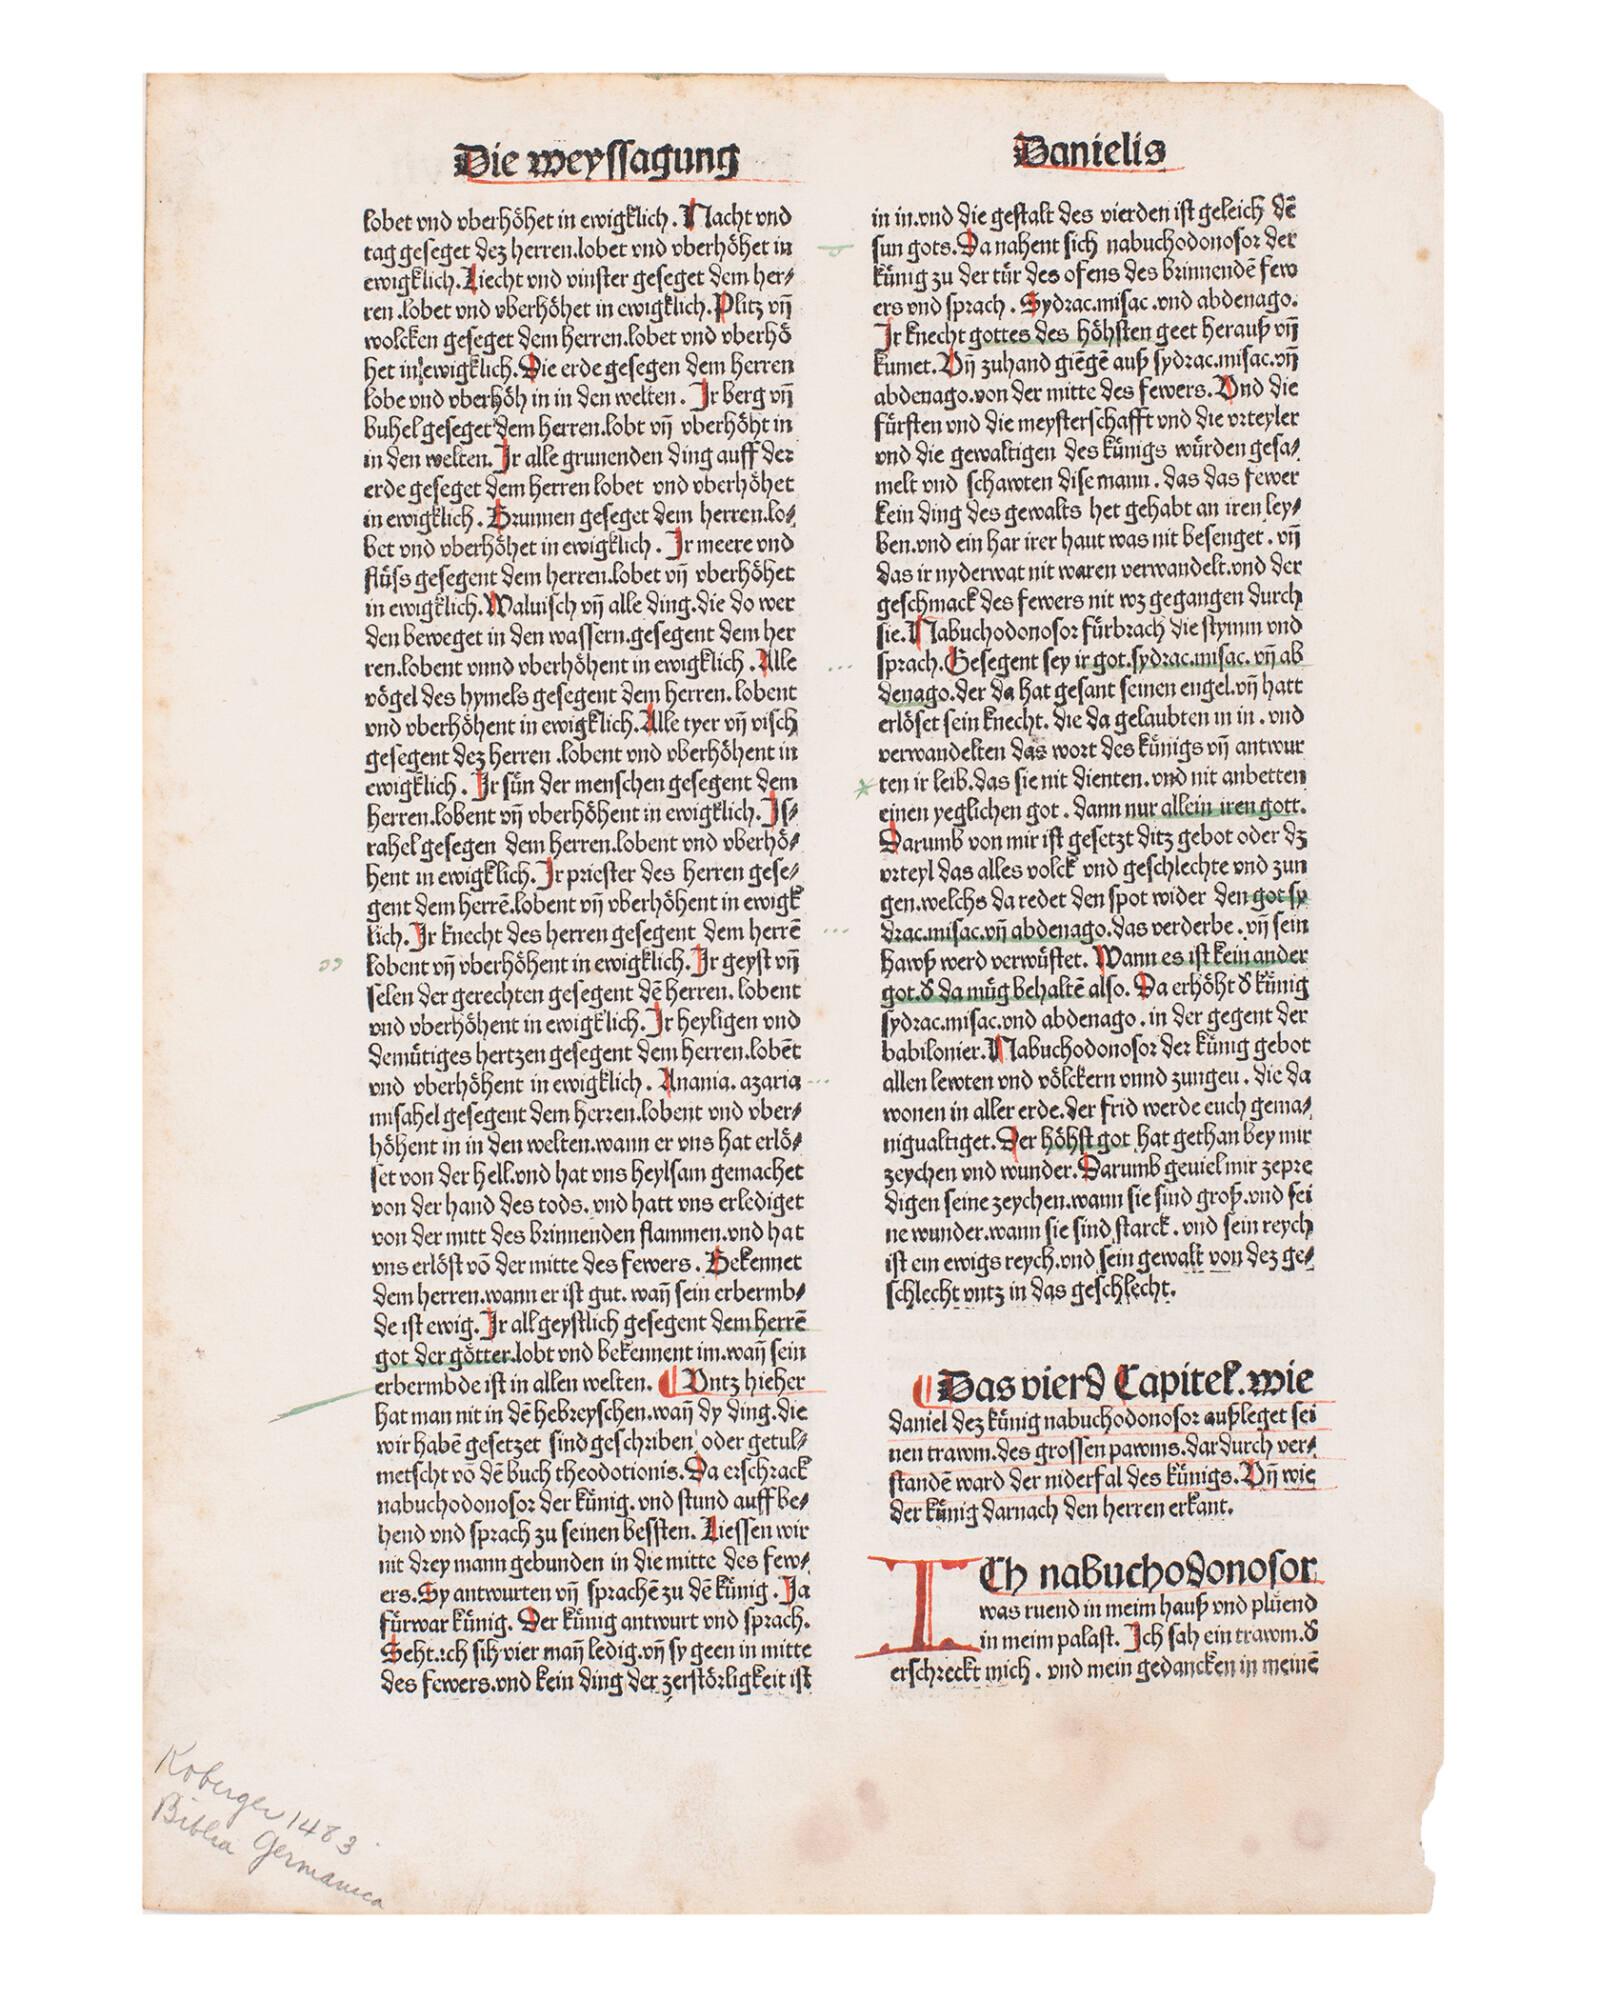 Die weyssagung
Danielis
lobet vnd vberhöhet in ewigklich. Nacht vnd
tag geseget dez herren.lobet vnd vberhöhet in
ewigklich. Liecht vnd vinster geseget dem her-
ren .lobet vnd vberhöhet in ewigklich. Plitz vñ
wolcken geseget dem herren.lobet vnd vberhö
het in ewigklich. Die erde gesegen dem herren
lobe vnd vberhöh in in den welten . Ir berg vñ
buhel geseget dem herren.lobt vñ vberhöht in
in den welten. Ir alle grunenden ding auff der
erde geseget dem herren lobet vnd vberhöhet
in ewigklich . Brunnen geseget dem herren.lo-
bet vnd vberhöhet in ewigklich . Ir meere vnd
flüss gesegent dem herren.lobet vñ vberhöhet
in ewigklich. Waluisch vñ alle ding.die do wer
den beweget in den wassern.gesegent dem her
ren.lobent vnnd vberhöhent in ewigklich . Alle
vögel des hymels gesegent dem herren. lobent
vnd vberhöhent in ewigklich. Alle tyer vñ visch
gesegent dez herren .lobent vnd vberhöhent in
ewigklich . Ir sün der menschen gesegent dem
herren.lobent vñ vberhöhent in ewigklich. Is-
rahel gesegen dem herren.lobent vnd vberhö-
hent in ewigklich. Ir priester des herren gese-
gent dem herrē.lobent vñ vberhöhent in ewigk
lich. Ir knecht des herren gesegent dem herrē
lobent vñ vberhöhent in ewigklich. Ir geyst vñ
selen der gerechten gesegent dē herren. lobent
vnd vberhöhent in ewigklich. Ir heyligen vnd
demütiges hertzen gesegent dem herren.lobēt
vnd vberhöhent in ewigklich . Anania. azaria
misahel gesegent dem herren.lobent vnd vber-
höhent in in den welten.wann er vns hat erlö-
set von der hell.vnd hat vns heylsam gemachet
von der hand des tods. vnd hatt vns erlediget
von der mitt des brinnenden flammen.vnd hat
vns erlöst vō der mitte des fewers . Bekennet
dem herren.wann er ist gut. wañ sein erbermb-
de ist ewig. Ir all geystlich gesegent dem herrē
got der götter.lobt vnd bekennent im.wañ sein
erbermbde ist in allen welten. ¶ Vntz hieher
hat man nit in dē hebreyschen.wañ dy ding. die
wir habē gesetzet sind geschriben oder getul-
metscht vō dē buch theodotionis. Da erschrack
nabuchodonosor der künig. vnd stund auff be-
hend vnd sprach zu seinen bessten. Liessen wir
nit drey mann gebunden in die mitte des few-
ers. Sy antwurten vñ sprachē zu dē künig . Ja
fürwar künig. Der künig antwurt vnd sprach.
Seht.ich sih vier mañ ledig.vñ sy geen in mitte
des fewers.vnd kein ding der zerstörligkeit ist
in in.vnd die gestalt des vierden ist geleich dē
sun gots. Da nahent sich nabuchodonosor der
künig zu der tür des ofens des brinnendē few
ers vnd sprach . Sydrac.misac .vnd abdenago.
Ir knecht gottes des höhsten geet herauß vñ
kumet. Vñ zuhand giēgē auß sydrac.misac.vñ
abdenago.von der mitte des fewers. Vnd die
fürsten vnd die meysterschafft vnd die vrteyler
vnd die gewaltigen des künigs würden gesa-
melt vnd schawten dise mann . das das fewer
kein ding des gewalts het gehabt an iren ley-
ben.vnd ein har irer haut was nit besenget . vñ
das ir nyderwat nit waren verwandelt.vnd der
geschmack des fewers nit wz gegangen durch
sie. Nabuchodonosor fürbrach die stymm vnd
sprach. Gesegent sey ir got.sydrac.misac. vñ ab
denago.der da hat gesant seinen engel.vñ hatt
erlöset sein knecht. die da gelaubten in in . vnd
verwandelten das wort des künigs vñ antwur
ten ir leib.das sie nit dienten. vnd nit anbetten
einen yeglichen got . dann nur allein iren gott.
Darumb von mir ist gesetzt ditz gebot oder dz
vrteyl das alles volck vnd geschlechte vnd zun
gen.welchs da redet den spot wider den got sy
drac.misac.vñ abdenago.das verderbe . vñ sein
hawß werd verwüstet. Wann es ist kein ander
got.d̕ da müg behaltē also. Da erhöht d̕ künig
sydrac.misac.vnd abdenago . in der gegent der
babilonier. Nabuchodonosor der künig gebot
allen lewten vnd völckern vnnd zungeu . die da
wonen in aller erde.der frid werde euch gema-
nigualtiget. Der höhst got hat gethan bey mir
zeychen vnd wunder. Darumb geuiel mir zepre
digen seine zeychen.wann sie sind groß.vnd sei
ne wunder.wann sie sind starck . vnd sein reych
ist ein ewigs reych.vnd sein gewalt von dez ge-
schlecht vntz in das geschlecht.
¶ Das vierd Capitel. wie
daniel dez künig nabuchodonosor außleget sei
nen trawm.des grossen pawms.dardurch ver-
standē ward der niderfal des künigs. Vñ wie
der künig darnach den herren erkant.
ICh nabuchodonosor
was ruend in meim hauß vnd plüend
in meim palast. Ich sah ein trawm.d̕
erschreckt mich . vnd mein gedancken in meinē
Koberger 1483
Biblia Germanica